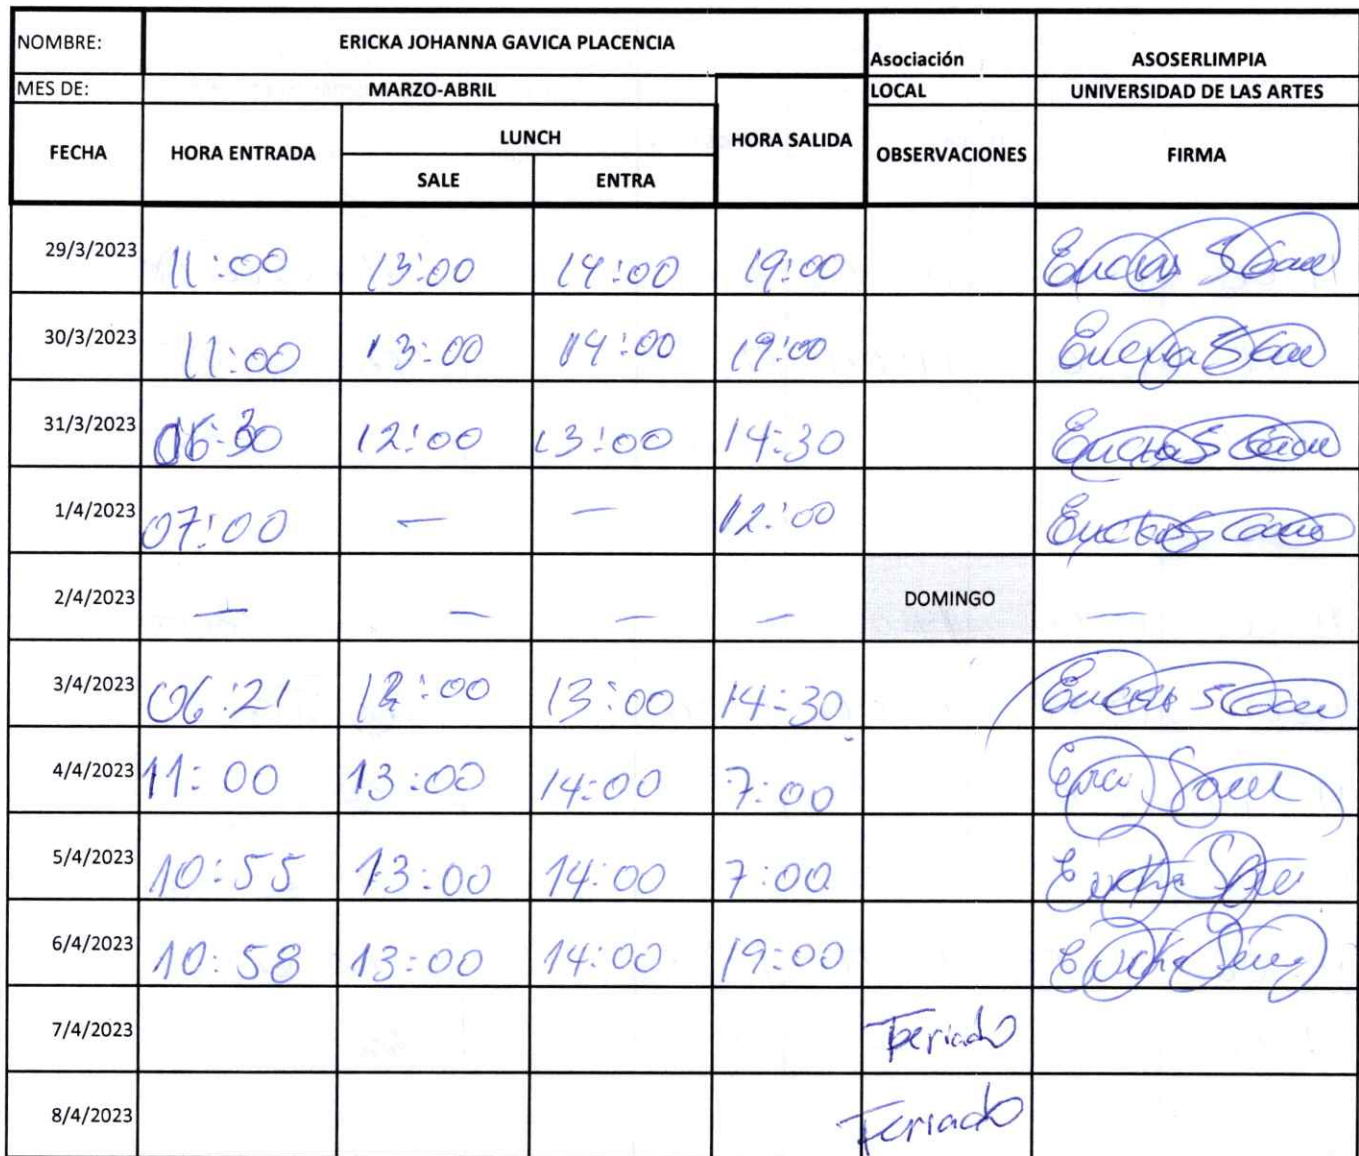 NOMBRE: ERICKA JOHANNA GAVICA PLACENCIA Asociación ASOSERLIMPIA
MES DE: MARZO-ABRIL LOCAL UNIVERSIDAD DE LAS ARTES
FECHA HORA ENTRADA LUNCH HORA SALIDA OBSERVACIONES FIRMA
SALE ENTRA
29/3/2023 11:00 13:00 14:00 19:00
30/3/2023 11:00 13:00 14:00 19:00
31/3/2023 06:30 12:00 13:00 14:30
1/4/2023 07:00 — — 12:00
2/4/2023 — — — — DOMINGO —
3/4/2023 06:21 12:00 13:00 14:30
4/4/2023 11:00 13:00 14:00 7:00
5/4/2023 10:55 13:00 14:00 7:00
6/4/2023 10:58 13:00 14:00 19:00
7/4/2023 Feriado
8/4/2023 Feriado